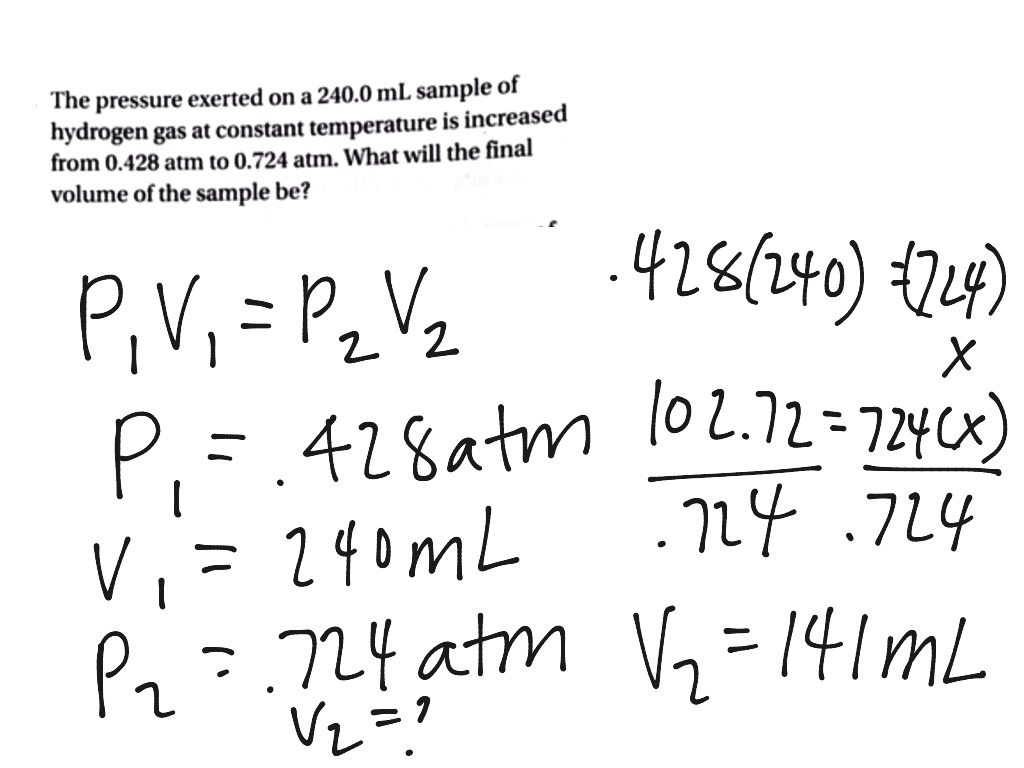 The pressure exerted on a 240.0 mL sample of
hydrogen gas at constant temperature is increased
from 0.428 atm to 0.724 atm. What will the final
volume of the sample be?
P₁V₁ = P₂V₂
P₁ = .428atm
V₁ = 240mL
P₂ = .724 atm
V₂ = ?
.428(240) = (724)
x
102.72 = 724(x)
.724 .724
V₂ = 141mL